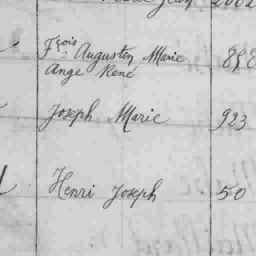 2002
Fçois Augustin Marie 898
Ange René
Joseph Marie 923
Henri Joseph 50